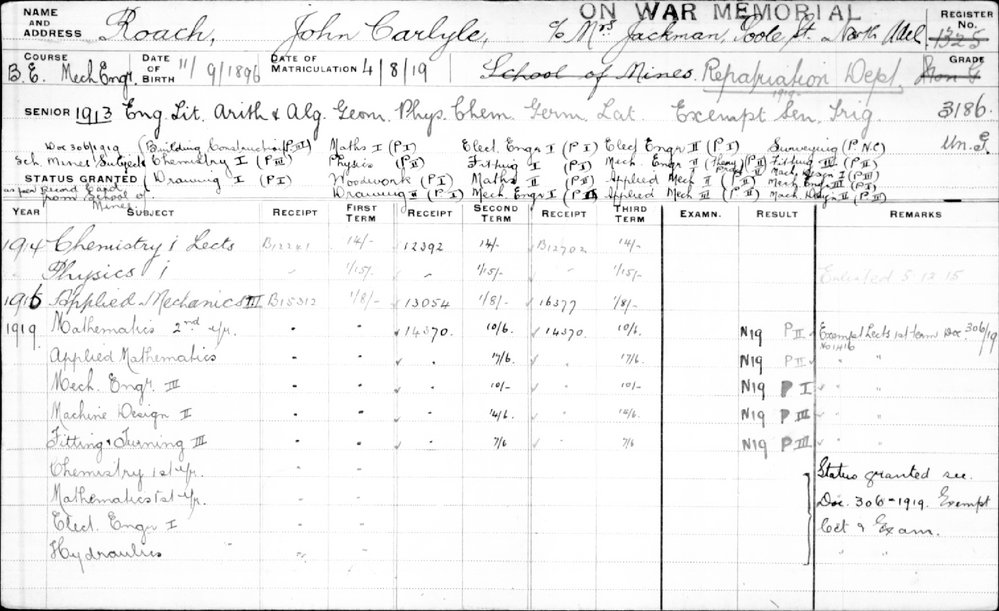 ON WAR MEMORIAL
NAME AND ADDRESS Roach, John Carlyle, c/o Mrs Jackman, Poole St. North Adel. REGISTER No. 1325
COURSE B.E. Mech Engr. DATE OF BIRTH 11/9/1896 DATE OF MATRICULATION 4/8/19 School of Mines. Repatriation Dept, GRADE
1919
SENIOR 1913 Eng. Lit. Arith & Alg. Geom. Phys. Chem. Germ. Lat. Exempt Sen. Trig 3186.
Doc 306/1919 (Building Construction (P II) Maths I (P I) Elect. Engr I (P I) Elect Engr II (P I) Surveying (P N.C)
Sch. Mines Subjects Chemistry I (P III) Physics (P II) Fitting I (P I) Mech. Engr II Fitting II (P II)
STATUS GRANTED Drawing I (P I) Woodwork (P I) Maths II (P I) Applied Mech I (P II) Mach. Design I (P III)
as per record card from School of Mines. Drawing II (P I) Mech. Engr I (P I) Applied Mech II (P II) Mach. Design II (P II)
YEAR SUBJECT RECEIPT FIRST TERM RECEIPT SECOND TERM RECEIPT THIRD TERM EXAMN. RESULT REMARKS
1914 Chemistry i Lects B12241 14/- 12392 14/- B12702 14/-
Physics i " 1/15/- " 1/15/- " 1/15/- Enlisted 5.12.15
1915 Applied Mechanics III B15312 1/8/- 13054 1/8/- 16377 1/8/-
1919 Mathematics 2nd yr. 14370. 10/6 14370. 10/6. N19 P II Exempt Lects 1st term Doc. 306/19
No 1416
Applied Mathematics 17/6. 17/6. N19 P II " "
Mech. Engr. III 10/- 10/- N19 P I " "
Machine Design II 14/6. 14/6. N19 P III " "
Fitting & Turning III 7/6 7/6 N19 P III " "
Chemistry 1st yr. Status granted see
Mathematics 1st yr. Doc. 306-1919. Exempt
Elect. Engr I Lect & Exam.
Hydraulics " "